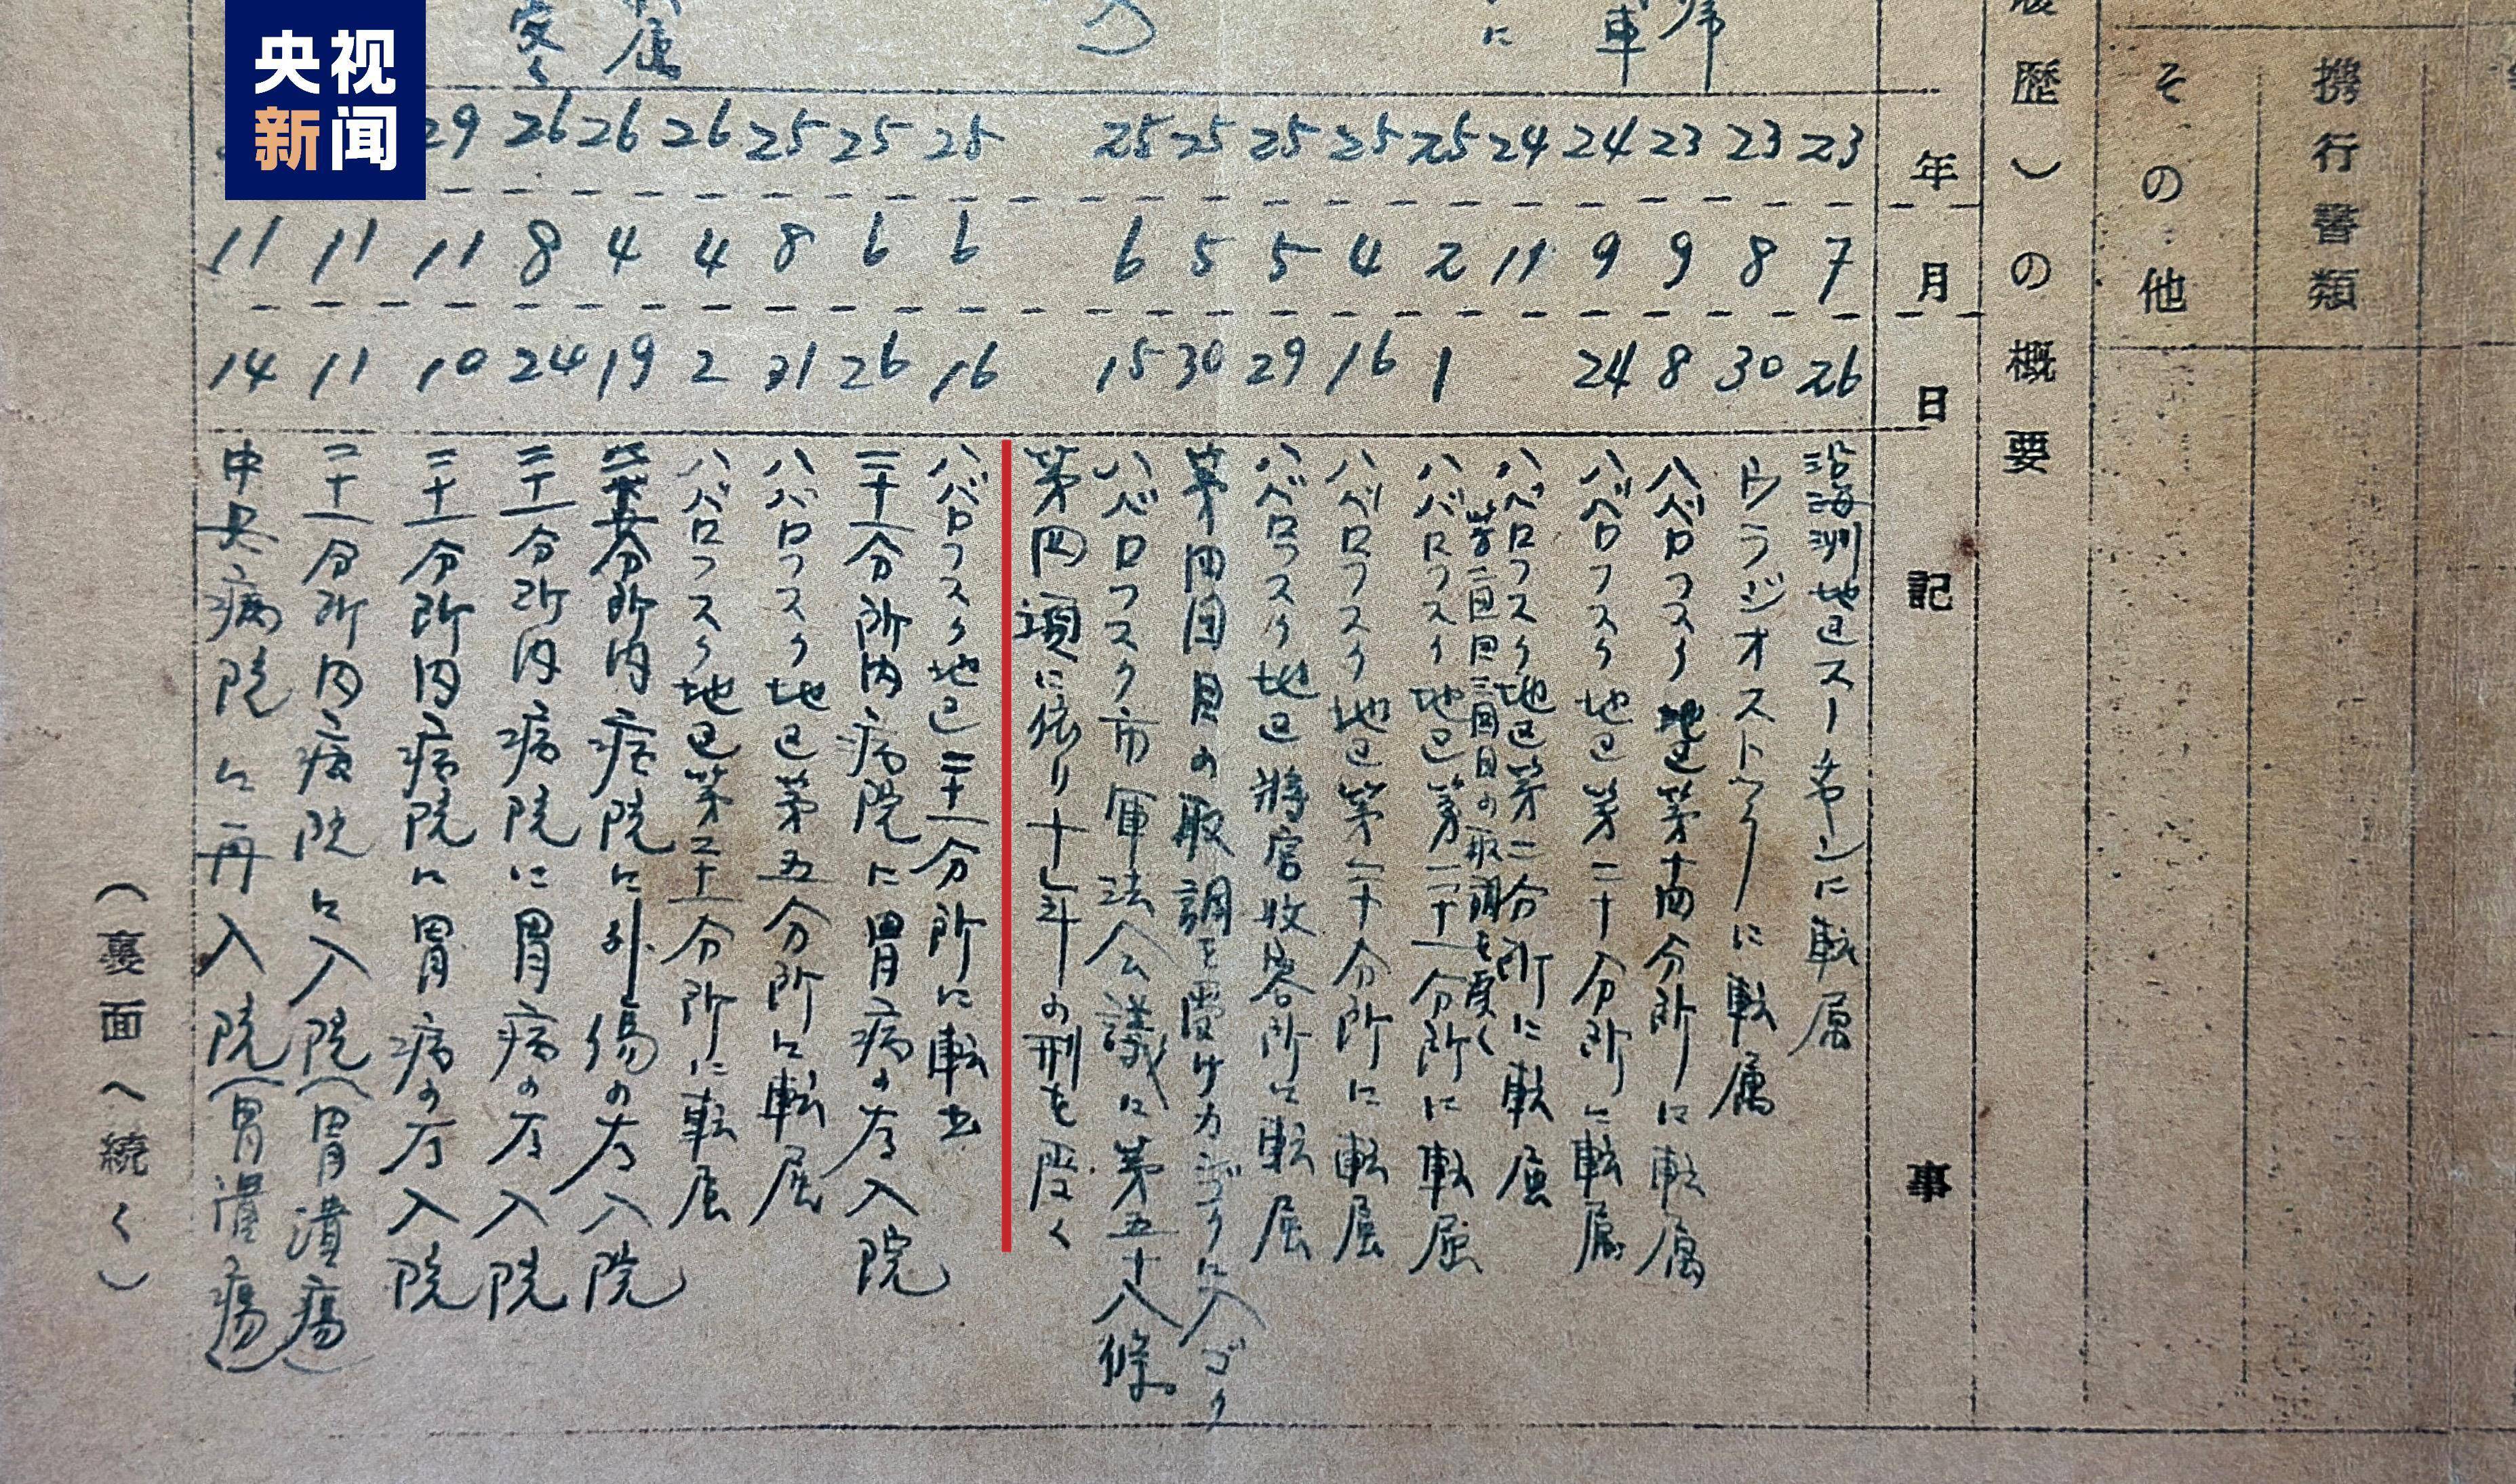 央视
新闻
携行書類
その他
歴）の概要
年
月
日
記事
23 7 26 沿海州地区スーチャンに転属
23 8 30 ウラジオストックに転属
23 9 8 ハバロフスク地区第十四分所に転属
24 9 24 ハバロフスク地区第二十分所に転属
24 11 ハバロフスク地区第二分所に転属
第二回目三回目の取調を受く
25 2 1 ハバロフスク地区第二十一分所に転属
25 4 16 ハバロフスク地区第二十分所に転属
25 5 29 ハバロフスク地区將官收容所に転属
25 5 30 第四回目の取調を受け カンゴクに入ゴク
25 6 15 ハバロフスク市軍法会議に第五十八條
第四項に依り十年の刑を受く
25 6 16 ハバロフスク地区二十一分所に転出
25 6 26 二十一分所内病院に胃病の為入院
25 8 31 ハバロフスク地区第五分所に転属
26 4 2 ハバロフスク地区第二十一分所に転属
26 4 19 分所内病院に外傷の為入院
26 8 24 二十一分所内病院に胃病の為入院
29 11 10 二十一分所内病院に胃病の為入院
11 11 二十一分所内病院に入院（胃潰瘍）
11 14 中央病院に再入院（胃潰瘍）
（裏面へ続く）